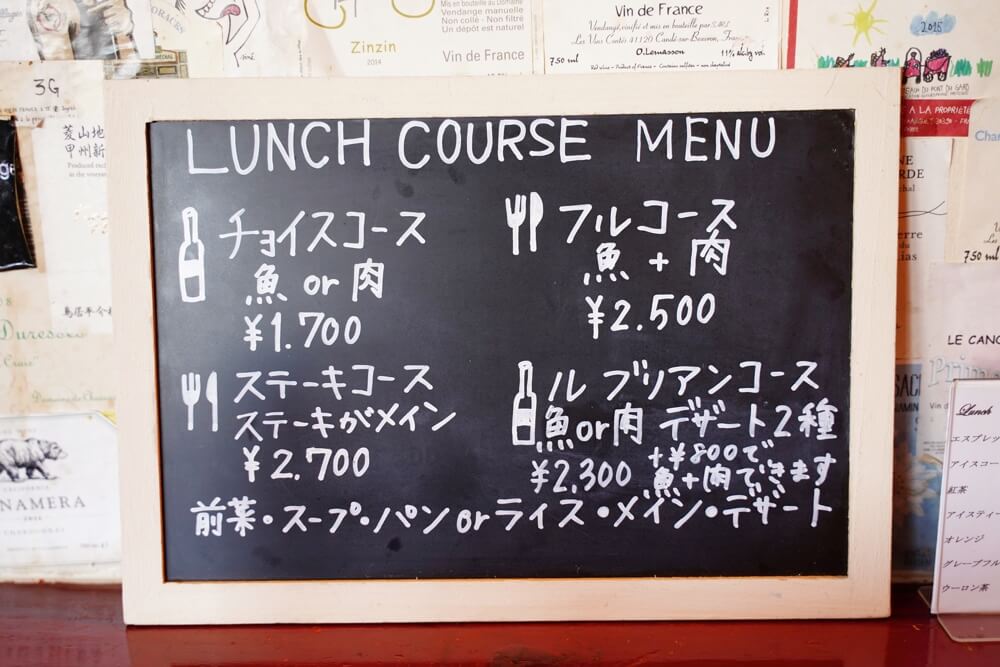 LUNCH COURSE MENU
チョイスコース
魚 or 肉
¥1.700
フルコース
魚 + 肉
¥2.500
ステーキコース
ステーキがメイン
¥2.700
ル ブリアンコース
魚or肉 デザート2種
¥2,300 +¥800で
魚+肉できます
前菜・スープ・パンorライス・メイン・デザート
Mis en bouteille au Domaine
Vendange manuelle
Non collé - Non filtré
Un dépôt est naturel
Zinzin
2014
Vin de France
Vin de France
O.Lemasson
750 ml
3G
菱山地
甲州新
2015
EAUX DU PONT DU GARD
A LA PROPRIETE
750 ml
LE CANON
CALIFORNIA
NAMERA
CHARDONNAY
Lunch
エスプレッ
アイスコー
紅茶
アイスティー
オレンジ
グレープフル
ウーロン茶